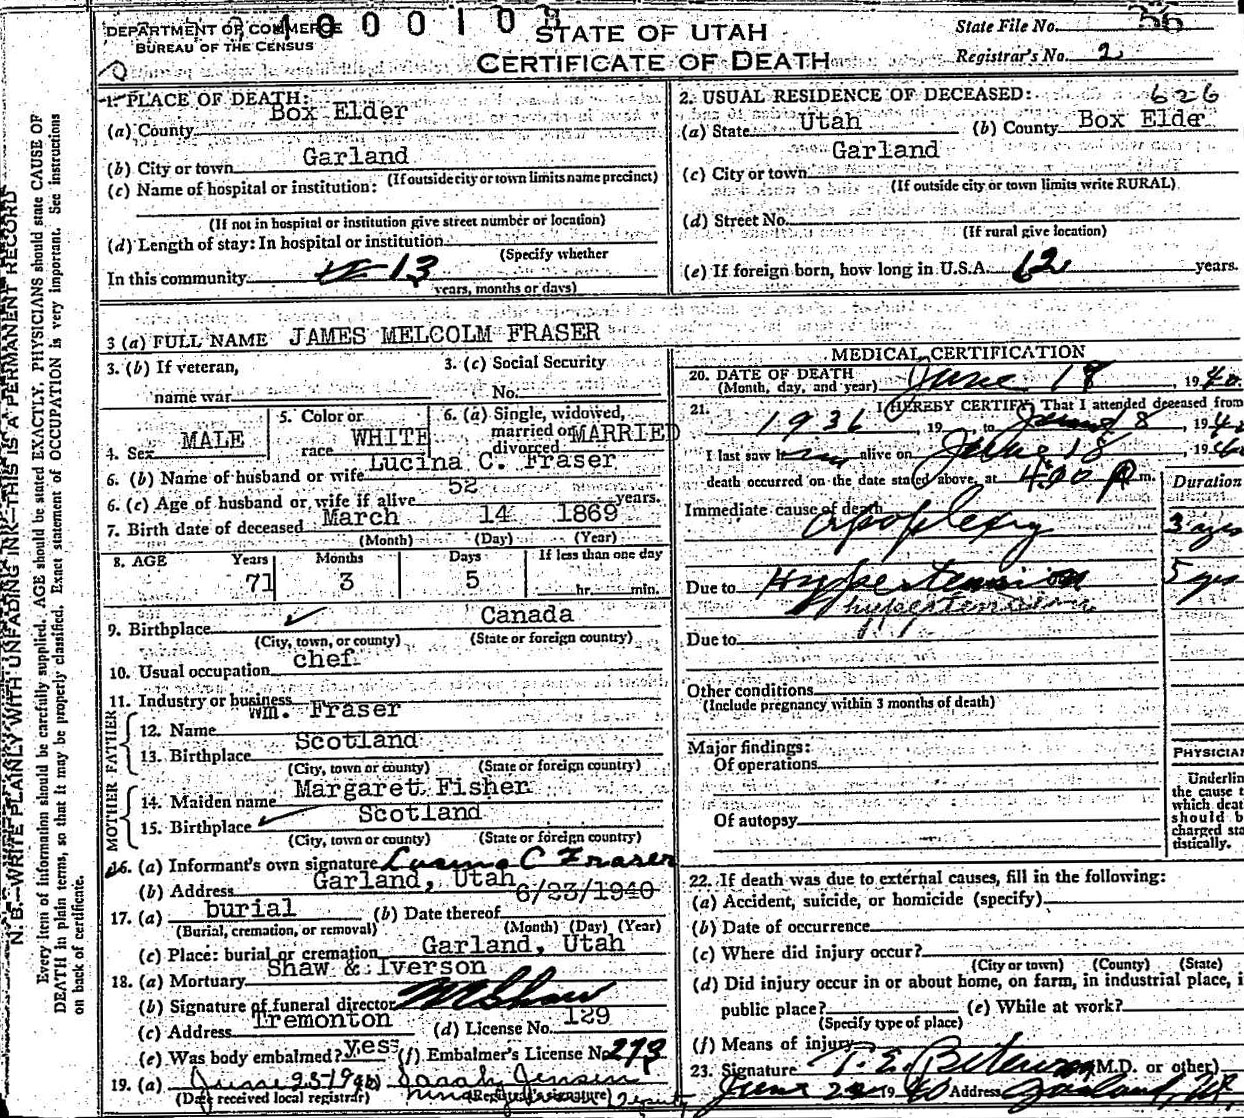 DEPARTMENT OF COMMERCE
BUREAU OF THE CENSUS
STATE OF UTAH
CERTIFICATE OF DEATH
State File No. 56
Registrar's No. 2
N. B.—WRITE PLAINLY WITH UNFADING INK—THIS IS A PERMANENT RECORD
Every item of information should be carefully supplied. AGE should be stated EXACTLY. PHYSICIANS should state CAUSE OF
DEATH in plain terms, so that it may be properly classified. Exact statement of OCCUPATION is very important. See instructions
on back of certificate.
1. PLACE OF DEATH:
(a) County Box Elder
(b) City or town Garland
(If outside city or town limits name precinct)
(c) Name of hospital or institution:
(If not in hospital or institution give street number or location)
(d) Length of stay: In hospital or institution
(Specify whether
In this community 13
years, months or days)
2. USUAL RESIDENCE OF DECEASED: 626
(a) State Utah (b) County Box Elder
(c) City or town Garland
(If outside city or town limits write RURAL)
(d) Street No.
(If rural give location)
(e) If foreign born, how long in U.S.A. 62 years.
3 (a) FULL NAME JAMES MELCOLM FRASER
3. (b) If veteran,
name war
3. (c) Social Security
No.
4. Sex MALE
5. Color or
race WHITE
6. (a) Single, widowed,
married or
divorced MARRIED
6. (b) Name of husband or wife Lucina C. Fraser
6. (c) Age of husband or wife if alive 52 years.
7. Birth date of deceased March 14 1869
(Month) (Day) (Year)
8. AGE Years Months Days If less than one day
71 3 5 hr. min.
9. Birthplace Canada
(City, town, or county) (State or foreign country)
10. Usual occupation chef
11. Industry or business
FATHER
12. Name Wm. Fraser
13. Birthplace Scotland
(City, town or county) (State or foreign country)
MOTHER
14. Maiden name Margaret Fisher
15. Birthplace Scotland
(City, town or county) (State or foreign country)
16. (a) Informant's own signature Lucina C Fraser
(b) Address Garland, Utah
17. (a) burial (b) Date thereof 6/23/1940
(Burial, cremation, or removal) (Month) (Day) (Year)
(c) Place: burial or cremation Garland, Utah
18. (a) Mortuary Shaw & Iverson
(b) Signature of funeral director M Shaw
(c) Address Tremonton (d) License No. 129
(e) Was body embalmed? yes (f) Embalmer's License No. 273
19. (a) June 25-1940 Sarah Jensen
(Date received local registrar) (Registrar's signature) Deputy
MEDICAL CERTIFICATION
20. DATE OF DEATH
(Month, day, and year) June 18, 1940
21. I HEREBY CERTIFY, That I attended deceased from
1936, 19, to June 18, 1940
I last saw him alive on June 18, 1940
death occurred on the date stated above, at 4:00 P m.
Duration
Immediate cause of death
apoplexy
Due to Hypertension 5 yrs
hypertension
Due to
Other conditions
(Include pregnancy within 3 months of death)
Major findings:
Of operations
Of autopsy
PHYSICIAN
Underline
the cause t
which deat
should b
charged sta
tistically.
22. If death was due to external causes, fill in the following:
(a) Accident, suicide, or homicide (specify)
(b) Date of occurrence
(c) Where did injury occur?
(City or town) (County) (State)
(d) Did injury occur in or about home, on farm, in industrial place, i
public place? (e) While at work?
(Specify type of place)
(f) Means of injury
23. Signature T. E. (M.D. or other)
June 1940 Address Garland, Ut.